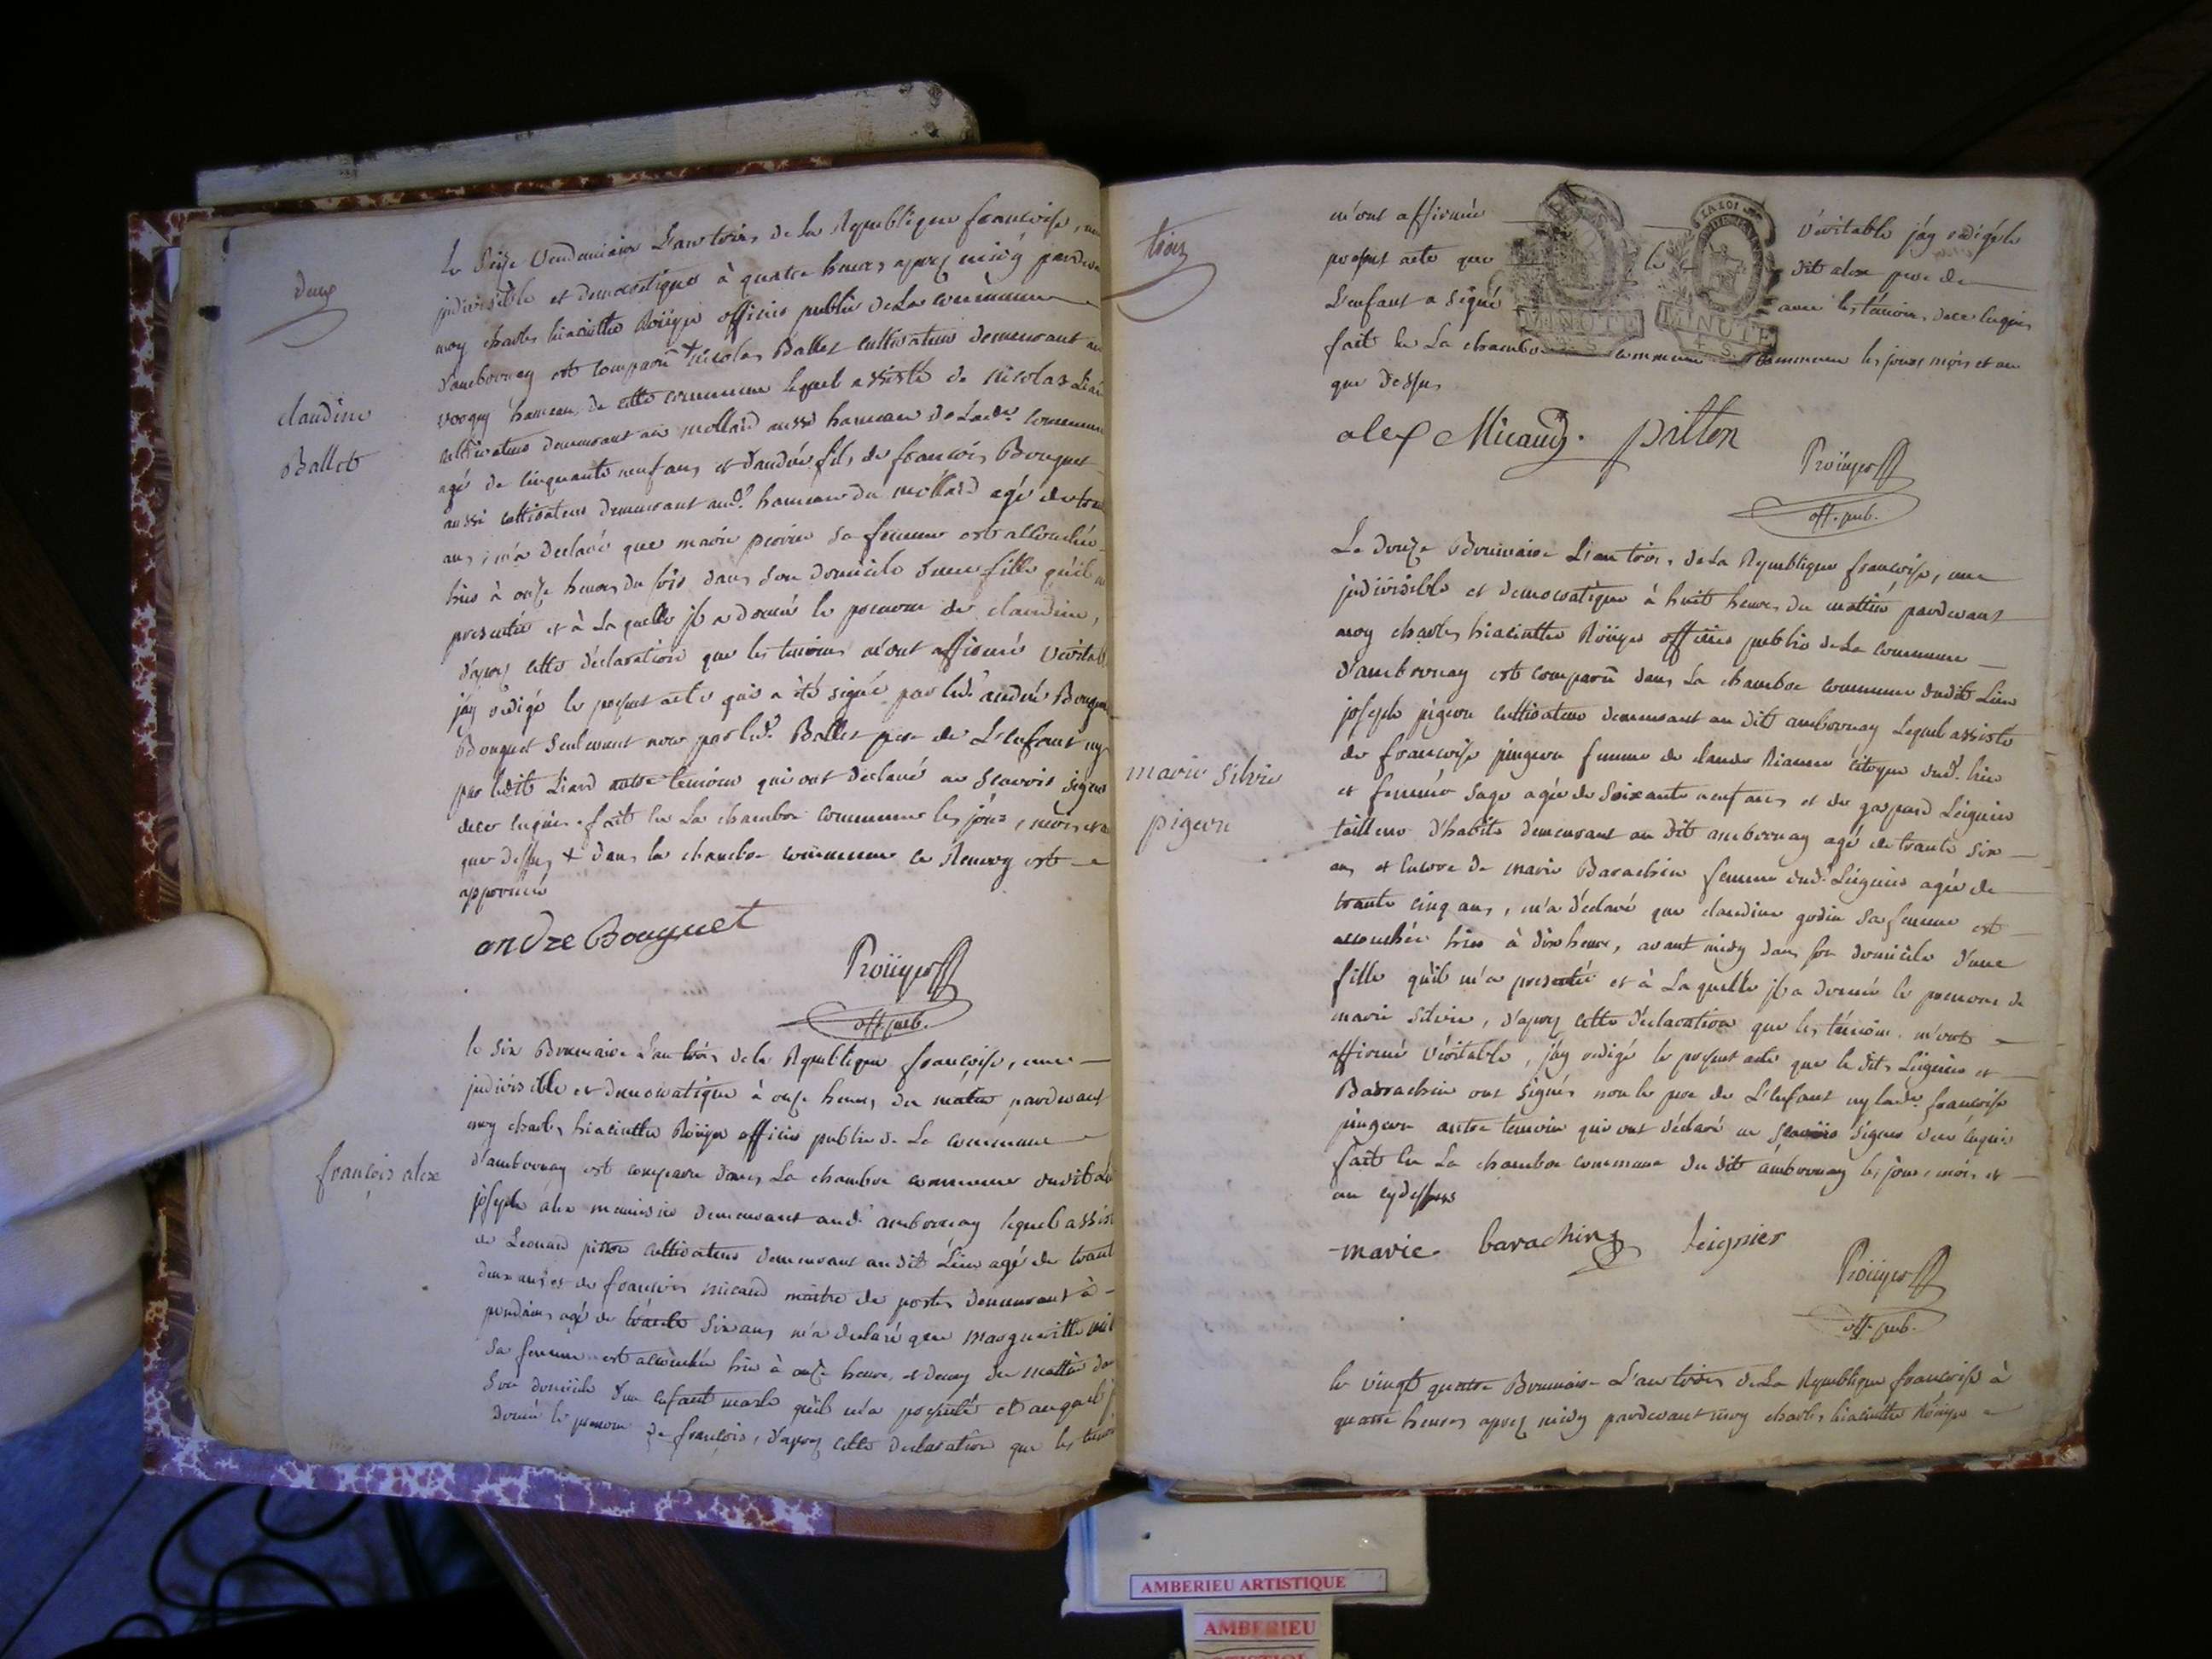 deux
claudine
Ballet
Le Seize Vendemiaire L'an trois de La Republique françoise, une
jndivisible et democratique à quatre heures aprez midy pardevant
moy charles hiacinthe officier public de La commune
d'ambournay est comparû + nicolas Ballet cultivateur demeurant au
hameau de cette commune lequel assisté de nicolas Liard
cultivateur demeurant au mollard aussi hameau de Lade. commune
agé de cinquante neuf ans et d'andré fils de francois Bouquet
aussi cultivateur demeurant aud. hameau du mollard agé de
ans, m'a declaré que marie perrin sa femme est allouchée
hier à onze heures du soir dans son domicile d'une fille qu'il m'a
presentée et à Laquelle jl a donné le prenom de claudine,
d'aprez cette déclaration que les témoins m'ont affirmé véritable
j'ay rédigé le present acte qui a été signé par led. andré Bouquet
Bouquet seulement non par led. Ballet pere de L'enfant ny
par ledit Liard autre témoin qui ont déclaré ne sçavoir signer
de ce enquis. fait en La chambre commune les jour, mois et an
que dessus + dans la chambre commune ce renvoy est
approuvé
andre Bouquet
off. pub.
françois alex
le six Brumaire L'an trois de la Republique françoise, une
jndivisible et democratique à onze heures du matin pardevant
moy charles hiacinthe officier public de La commune
d'ambournay est comparu dans La chambre commune dudit Lieu
joseph alex menuisier demeurant aud. ambournay lequel assisté
de Leonard pitton cultivateur demeurant au dit Lieu agé de trante
deux ans et de francois micaud maitre de postes demeurant à
agé de trante six ans m'a declaré que margueritte
sa femme est allouchée hier à onze heures et demy du mattin dans
son domicile d'un enfant masle qu'il m'a presenté et auquel jl
donné le prenom de francois, d'aprez cette declaration que les témoins
trois
m'ont affirmée véritable j'ay rédigé le
present acte que le dit alex pere de
L'enfant a signé avec les témoins de ce enquis
fait en La chambre commune commune les jour mois et an
que dessus
alex Micaud. pitton
off. pub.
marie silvie
pigeon
Le douze Brumaire L'an trois de La Republique françoise, une
jndivisible et democratique à huit heures du mattin pardevant
moy charles hiacinthe officier public de La commune
d'ambournay est comparû dans La chambre commune dudit Lieu
joseph pigeon cultivateur demeurant au dit ambournay Lequel assisté
de françoise pingeon femme de claude citoyen dud. lieu
et femme sage agée de soixante neuf ans et de gaspard Leignier
tailleur d'habits demeurant au dit ambournay agé de trante six
ans et encore de marie Barachin femme dud. Leignier agée de
trante cinq ans, m'a déclaré que claudine godin sa femme est
accouchée hier à dix heures, avant midy dans son domicile d'une
fille qu'il m'a presentée et à Laquelle jl a donné le prenom de
marie silvie, d'aprez cette déclaration que les témoins m'ont
affirmé véritable, j'ay rédigé le present acte que le dit Leignier et
Barrachin ont signés non le pere de L'enfant ny lade. françoise
pingeon autre témoin qui ont déclaré ne sçavoir signer de ce enquis
fait en La chambre commune du dit ambournay les jour, mois et
an cy dessus
marie barachin leignier
off. pub.
le vingt quatre Brumaire L'an trois de La Republique françoise à
quatre heures aprez midy pardevant moy charles hiacinthe
LA LOI
MINUTE
MINUTE
AMBERIEU ARTISTIQUE
AMBERIEU